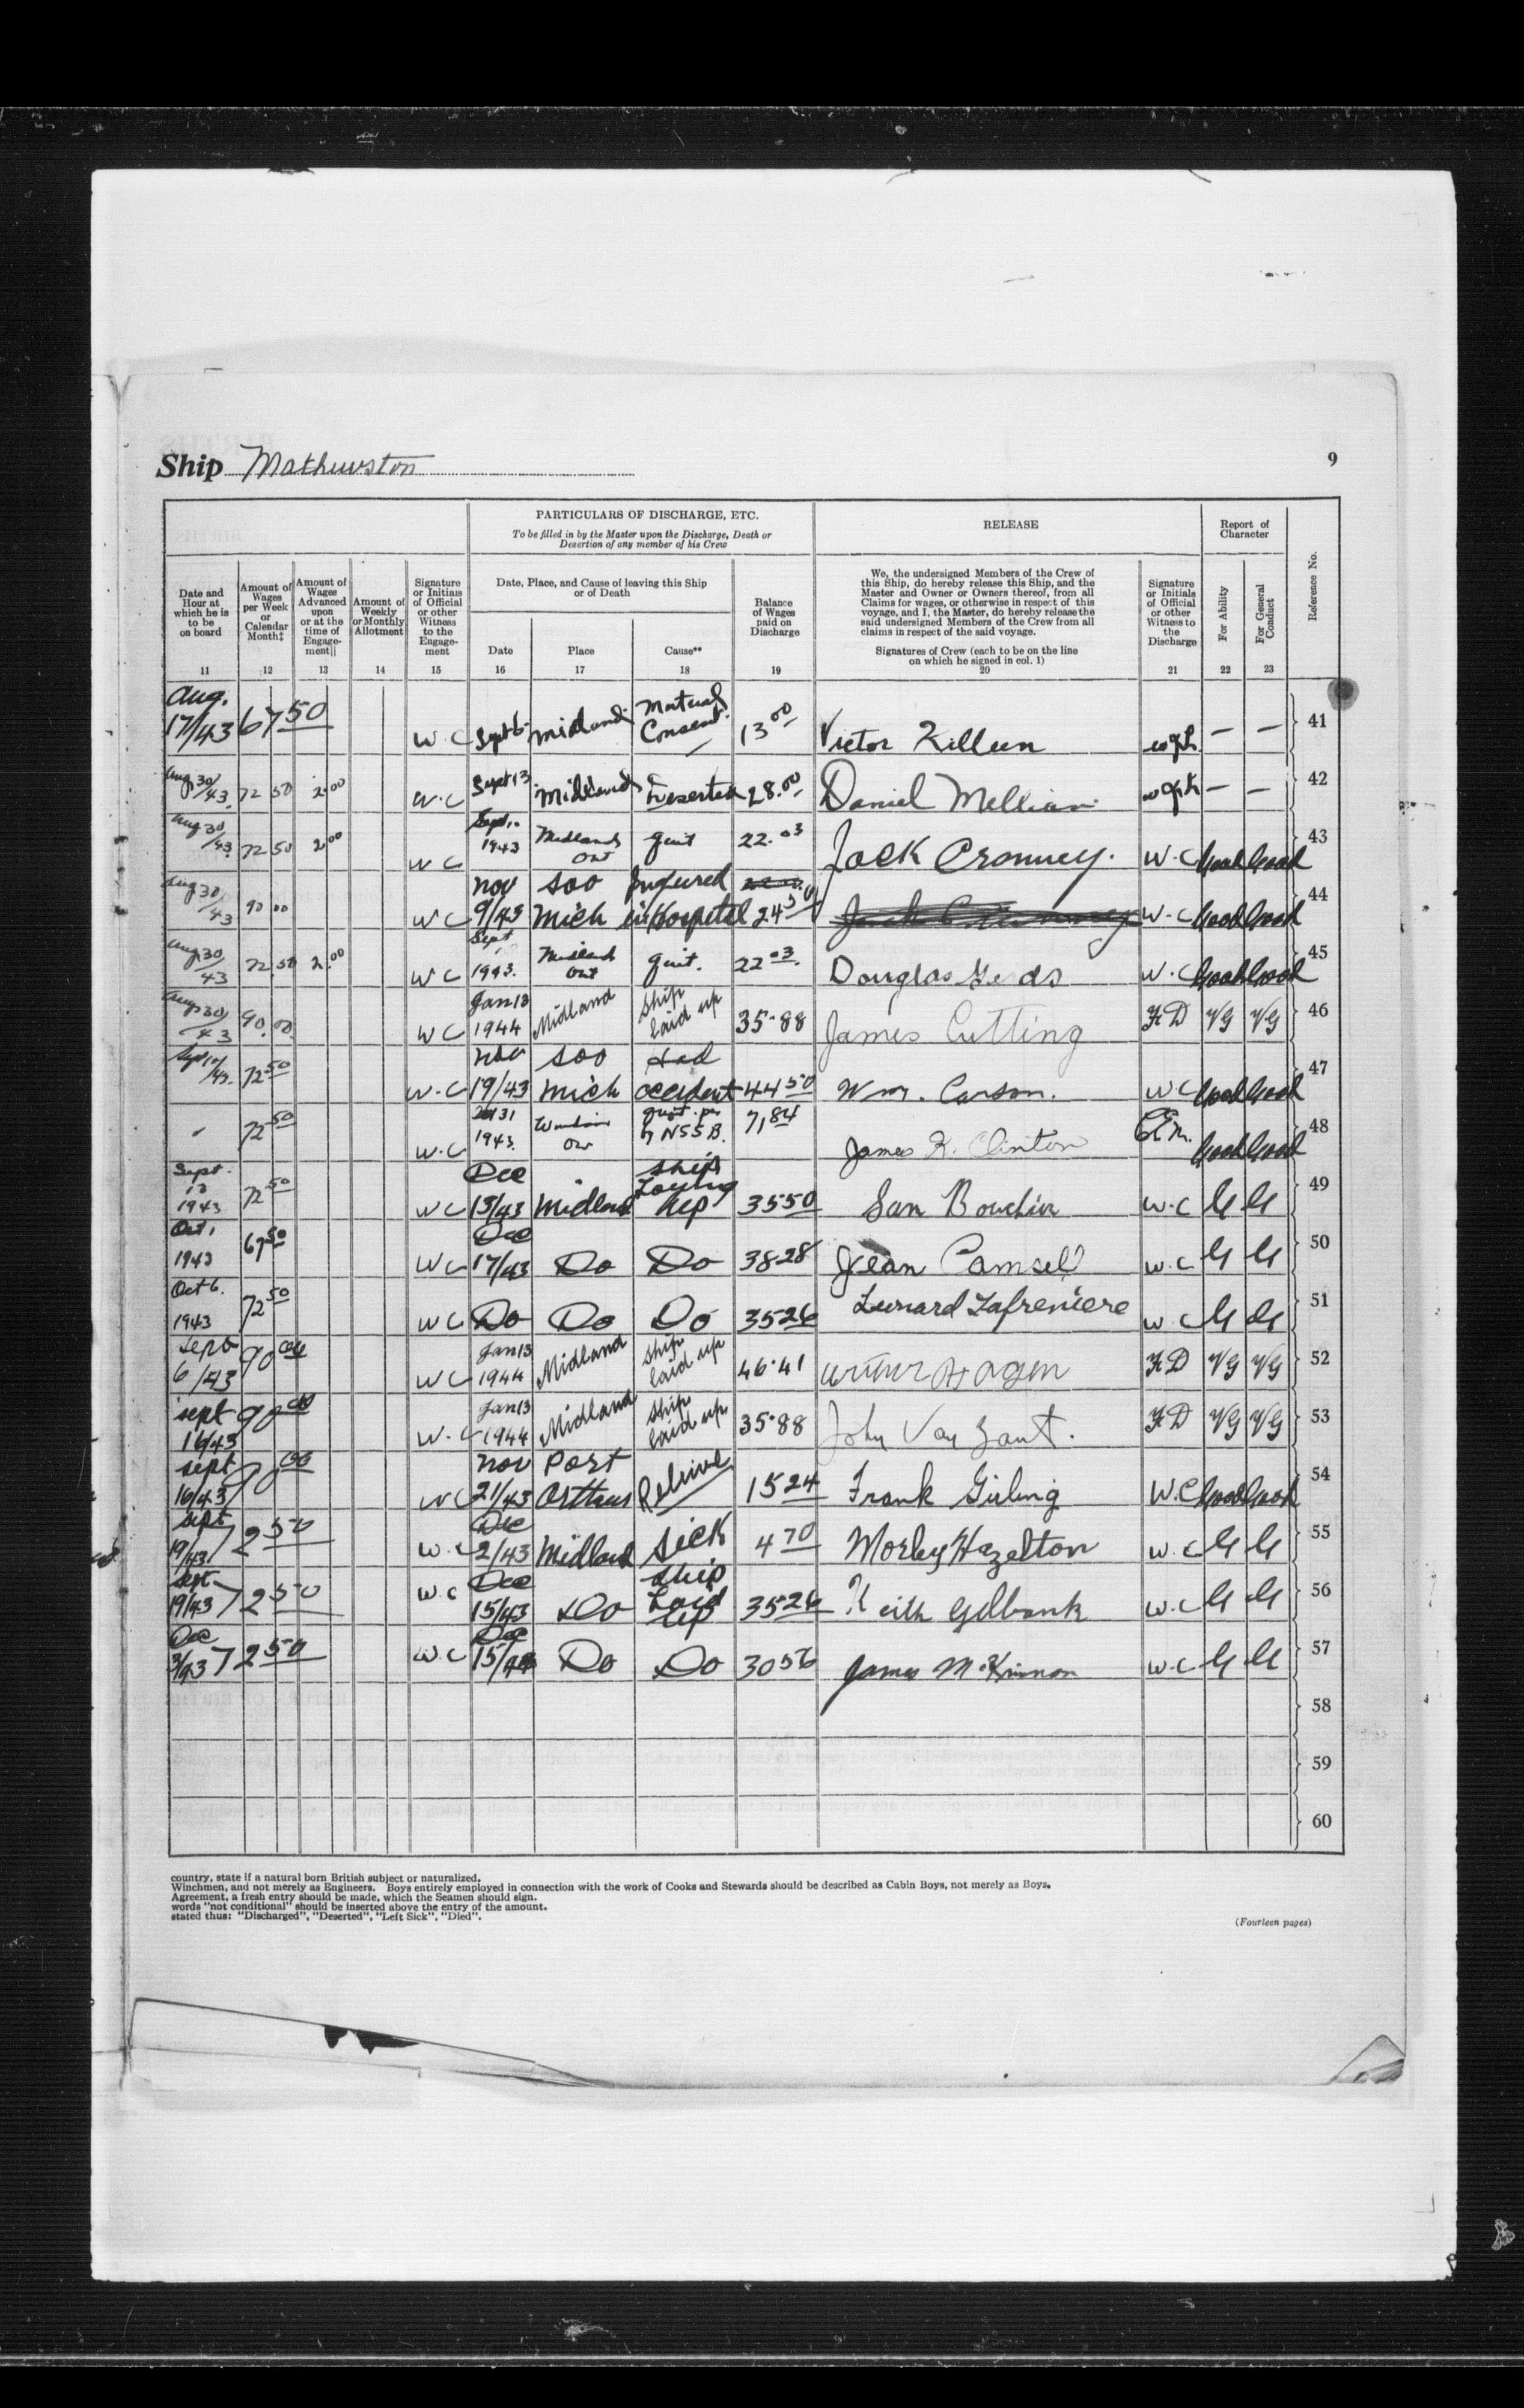 Ship Mathewston
9
PARTICULARS OF DISCHARGE, ETC.
To be filled in by the Master upon the Discharge, Death or
Desertion of any member of his Crew
RELEASE
Report of
Character
Reference No.
Date and
Hour at
which he is
to be
on board
Amount of
Wages
per Week
or
Calendar
Month‡
Amount of
Wages
Advanced
upon
or at the
time of
Engage-
ment||
Amount of
Weekly
or Monthly
Allotment
Signature
or Initials
of Official
or other
Witness
to the
Engage-
ment
Date, Place, and Cause of leaving this Ship
or of Death
Date
Place
Cause**
Balance
of Wages
paid on
Discharge
We, the undersigned Members of the Crew of
this Ship, do hereby release this Ship, and the
Master and Owner or Owners thereof, from all
Claims for wages, or otherwise in respect of this
voyage, and I, the Master, do hereby release the
said undersigned Members of the Crew from all
claims in respect of the said voyage.
Signatures of Crew (each to be on the line
on which he signed in col. 1)
Signature
or Initials
of Official
or other
Witness to
the
Discharge
For Ability
For General
Conduct
11 12 13 14 15 16 17 18 19 20 21 22 23
Aug. 17/43 67 50 W.C Sept 6 Midland Mutual Consent 13 00 Victor Killeen — — 41
Aug 30/43 72 50 2 00 W.C Sept 13 Midland Deserted 28.00 Daniel — — 42
Aug 30/43 72 50 2 00 W C Sept 1943 Midland Ont quit 22.03 Jack Cronney. W.C Good Good 43
Aug 30/43 90 00 W C Nov 9/43 Soo Mich Injured in Hospital 24 50 W.C Good Good 44
Aug 30/43 72 50 2.00 W C Sept 1943. Midland Ont quit. 22 03. Douglas W.C Good Good 45
Aug 30/43 90.00. W C Jan 13 1944 Midland Ship laid up 35.88 James Cutting F D VG VG 46
72 50 W.C Nov 19/43 Soo Mich Had accident 44 50 Wm. Carson. W C Good Good 47
72 50 W.C 1943. Ont N S S B. 71,84 James R. Clinton Good Good 48
Sept. 13 1943 72 50 W C Dec 15/43 Midland Ship Laying up 35 50 San W.C G G 49
Oct. 1943 67 50 W C Dec 17/43 Do Do 38 28 Jean Camsell W.C G G 50
Oct 6. 1943 72 50 W C Do Do Do 35 26 Leonard Lafreniere W C G G 51
Sept 6/43 90 00 W C Jan 13 1944 Midland Ship laid up 46.41 F D VG VG 52
Sept 16/43 90 00 W.C Jan 13 1944 Midland Ship laid up 35.88 John Van Zant. F D VG VG 53
Sept 16/43 90 00 W C Nov 21/43 Port 15 24 Frank Girling W.C Good Good 54
Sept 19/43 72 50 W.C Dec 2/43 Midland Sick 4 70 Morley Hazelton W.C G G 55
Sept 19/43 72 50 W.C Dec 15/43 Do Ship Laid up 35 26 Keith Gilbank W.C G G 56
Dec 3/43 72 50 W.C Dec 15/43 Do Do 30 56 James McKinnon W.C G G 57
58
59
60
country, state if a natural born British subject or naturalized.
Winchmen, and not merely as Engineers. Boys entirely employed in connection with the work of Cooks and Stewards should be described as Cabin Boys, not merely as Boys.
Agreement, a fresh entry should be made, which the Seamen should sign.
words "not conditional" should be inserted above the entry of the amount.
stated thus: "Discharged", "Deserted", "Left Sick", "Died".
(Fourteen pages)